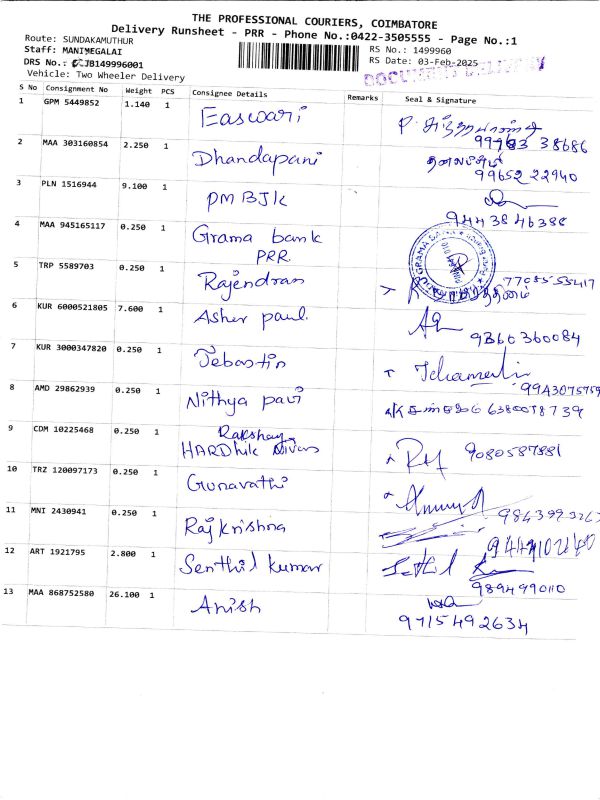 THE PROFESSIONAL COURIERS, COIMBATORE
Delivery Runsheet - PRR - Phone No.:0422-3505555 - Page No.:1
Route: SUNDAKAMUTHUR
RS No.: 1499960
Staff: MANIMEGALAI
RS Date: 03-Feb-2025
DRS No.: JB149996001
Vehicle: Two Wheeler Delivery
S No Consignment No Weight PCS Consignee Details Remarks Seal & Signature
1 GPM 5449852 1.140 1 Easwari
99983 38686
2 MAA 303160854 2.250 1 Dhandapani
தனலட்சுமி
99652 22940
3 PLN 1516944 9.100 1 PMBJK
9443846388
4 MAA 945165117 0.250 1 Grama bank
PRR
5 TRP 5589703 0.250 1 Rajendran 7708555417
6 KUR 6000521805 7.600 1 Asher paul.
9360360084
7 KUR 3000347820 0.250 1 Jebastin
9943075759
8 AMD 29862939 0.250 1 Nithya pavi 6380078739
9 CDM 10225468 0.250 1 Rakshay
HARDhik Nivas 9080587881
10 TRZ 120097173 0.250 1 Gunavathi
11 MNI 2430941 0.250 1 Rajkrishna
12 ART 1921795 2.800 1 Senthil kumar
9894990110
13 MAA 868752580 26.100 1 Anish
9715492634